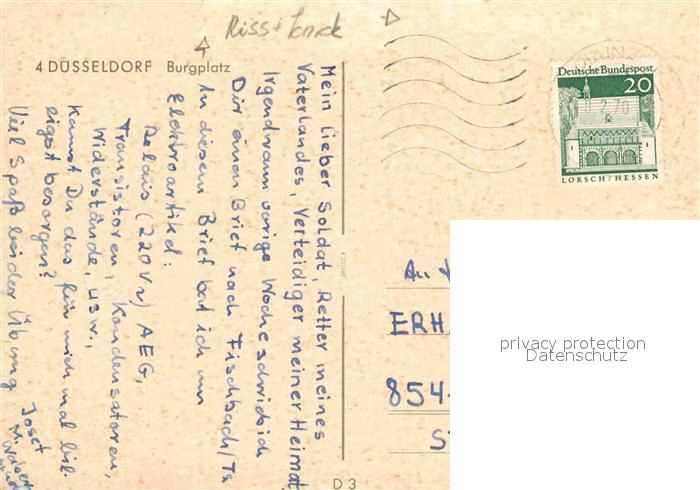 Riss + Knick
4 DÜSSELDORF Burgplatz
Deutsche Bundespost
20
7.70
LORSCH/HESSEN
Mein lieber Soldat, Retter meines
Vaterlandes, Verteidiger meiner Heimat,
Irgendwann vorige Woche schrieb ich
Dir einen Brief nach Fischbach/Ts
In diesem Brief bat ich um
Elektroartikel:
Relais (220 V~) AEG,
Transistoren, Kondensatoren,
Widerstände, usw.,
Kannst Du das für mich mal bil-
ligst besorgen?
Viel Spaß bei der Übung
Josef
An
ERH
854
S
privacy protection
Datenschutz
D 3